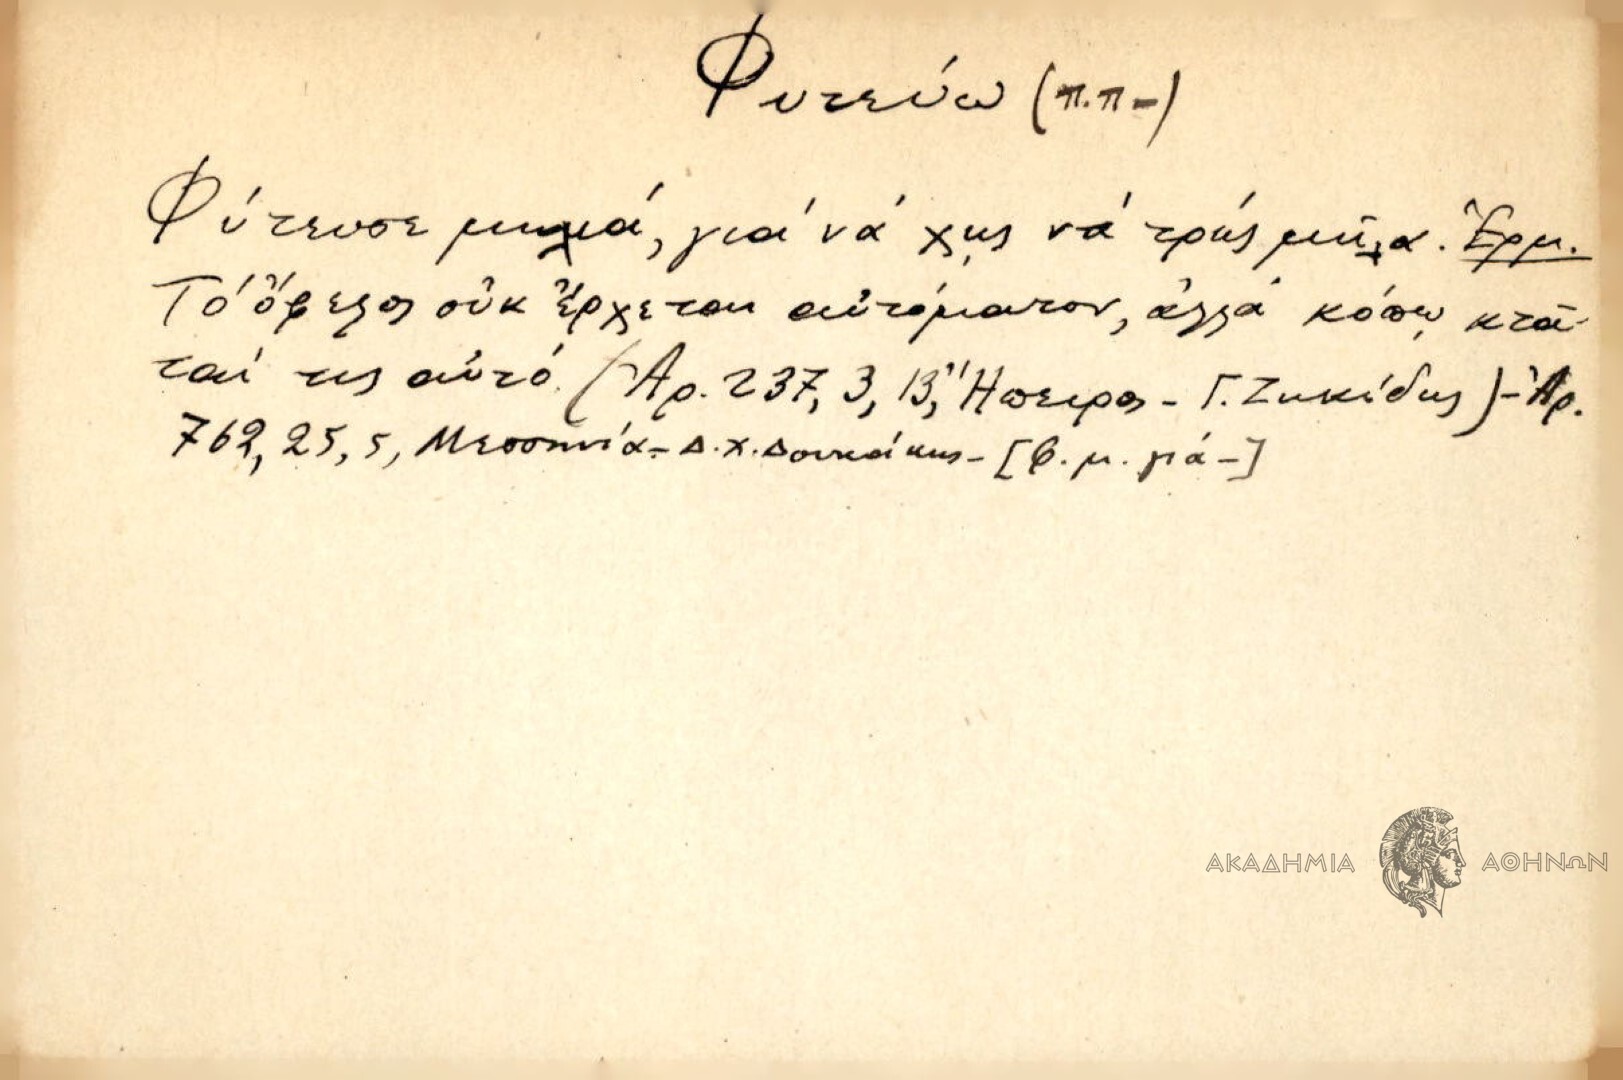 Φυτεύω (π.π-)
Φύτευσε μηλιά, γιά νά χῃς νά τρῴς μῆλα. Ἑρμ.
Τό ὄφελος οὐκ ἔρχεται αὐτόματον, ἀλλά κόπῳ κτᾶ-
ταί τις αὐτό. (Ἀρ. 237, 3, 13, Ἤπειρος - Γ. Ζηκίδης) - Ἀρ.
762, 25, 5, Μεσσηνία - Δ. Χ. Δουκάκης - [φ. μ. γιά -]
ΑΚΑΔΗΜΙΑ ΑΘΗΝΩΝ